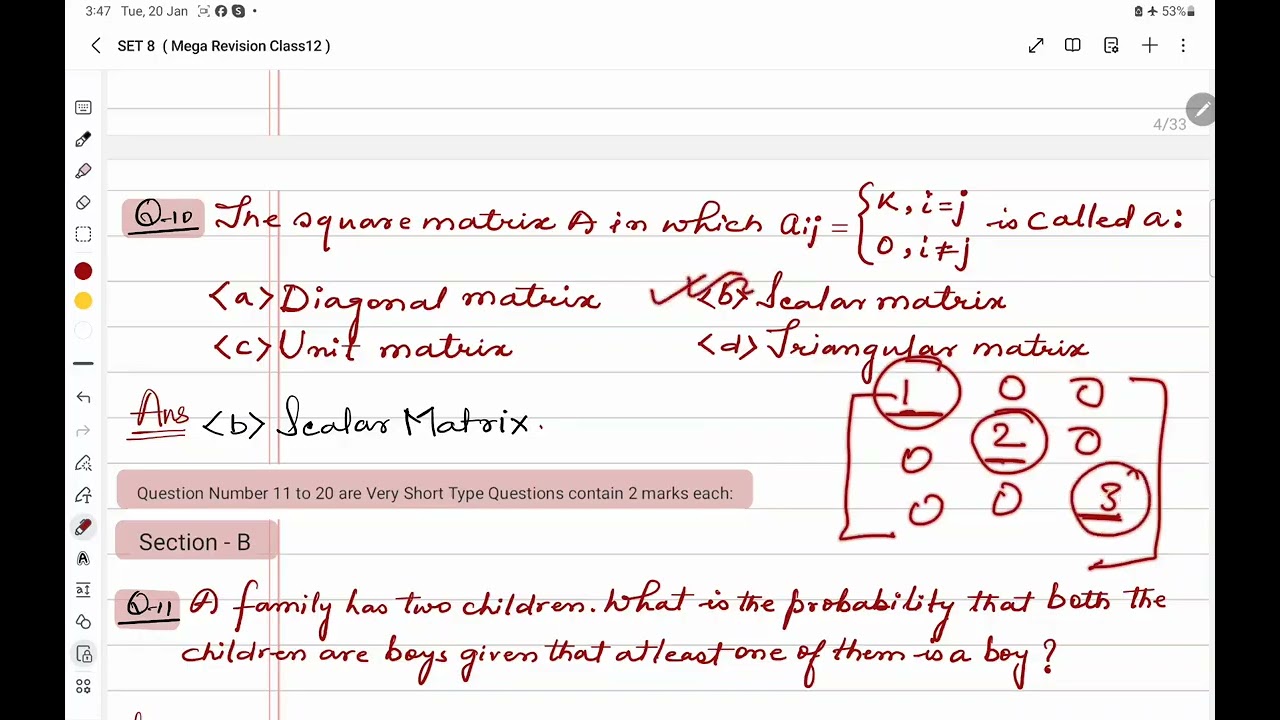 3:47 Tue, 20 Jan
53%
SET 8 ( Mega Revision Class12 )
4/33
Q-10 The square matrix A in which aij = { K, i=j
0, i≠j is called a:
<a> Diagonal matrix <b> Scalar matrix
<c> Unit matrix <d> Triangular matrix
Ans <b> Scalar Matrix.
1 0 0
0 2 0
0 0 3
Question Number 11 to 20 are Very Short Type Questions contain 2 marks each:
Section - B
Q-11 A family has two children. What is the probability that both the
children are boys given that atleast one of them is a boy?